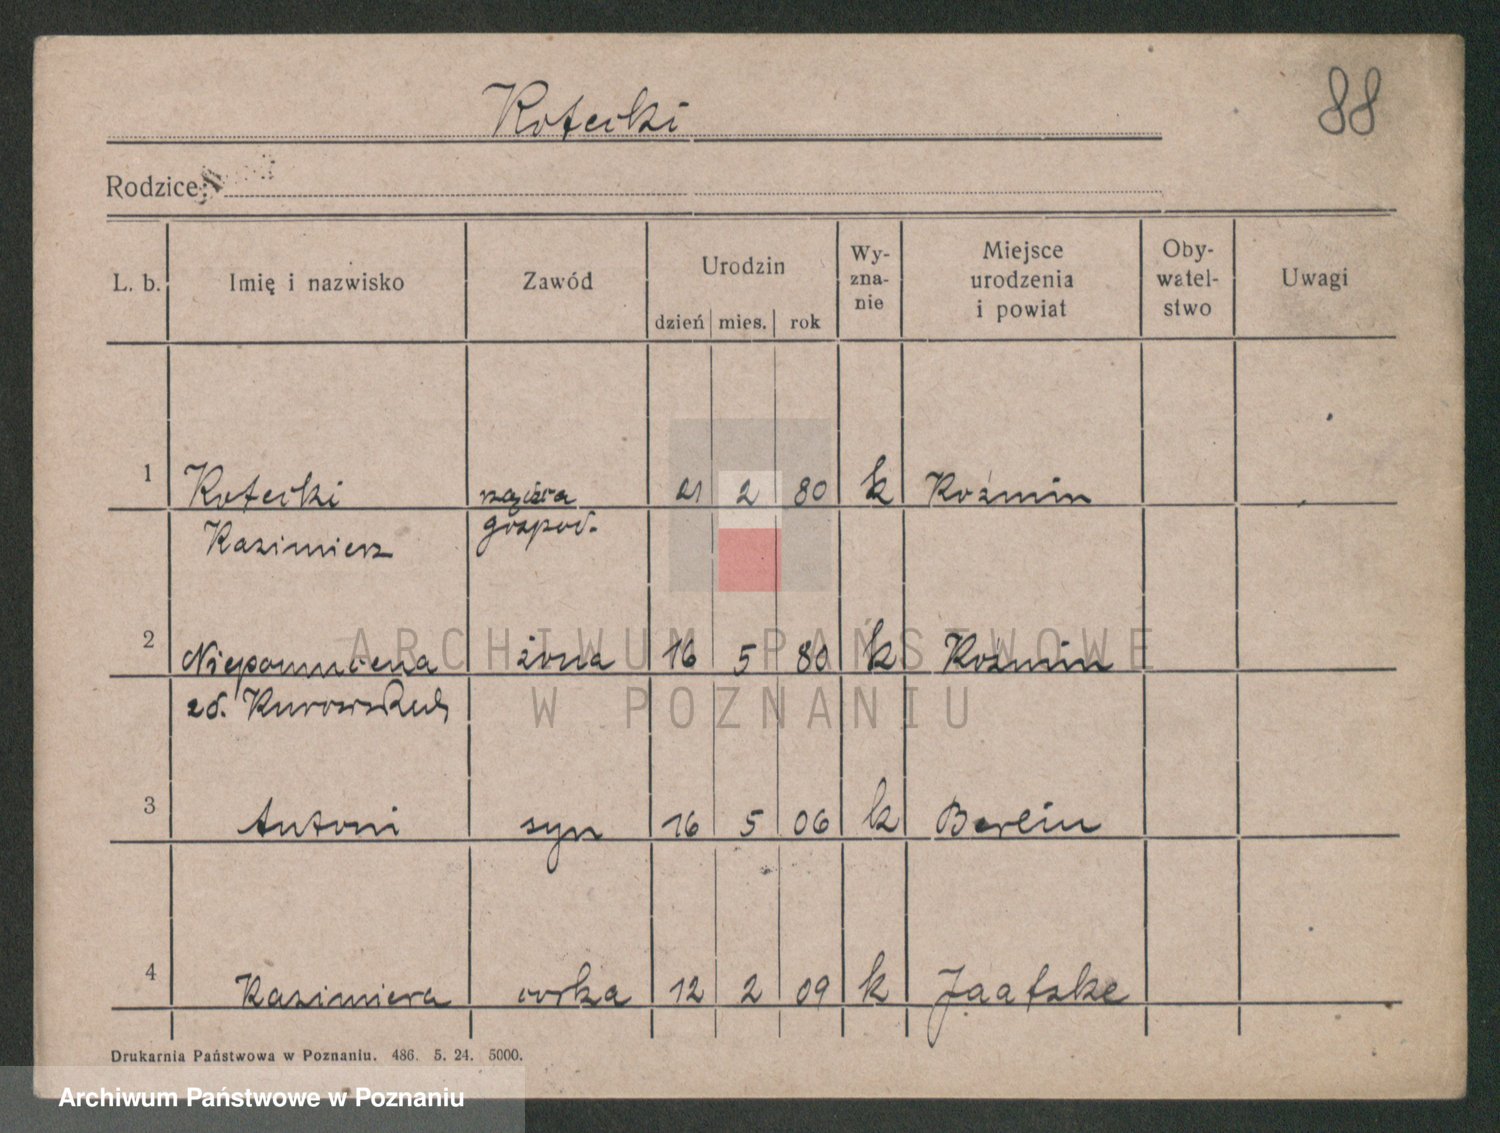 88
Kotecki
Rodzice:
L. b. Imię i nazwisko Zawód Urodzin dzień mies. rok Wy-zna-nie Miejsce urodzenia i powiat Oby-watel-stwo Uwagi
1 Kotecki 21 2 80 k Koźmin
Kazimierz gospod.
2 Niepomucena żona 16 5 80 k Koźmin
zd. Kurowskich
3 Antoni syn 16 5 06 k Berlin
4 Kazimiera córka 12 2 09 k Jaatzke
Drukarnia Państwowa w Poznaniu. 486. 5. 24. 5000.
ARCHIWUM PAŃSTWOWE
W POZNANIU
Archiwum Państwowe w Poznaniu